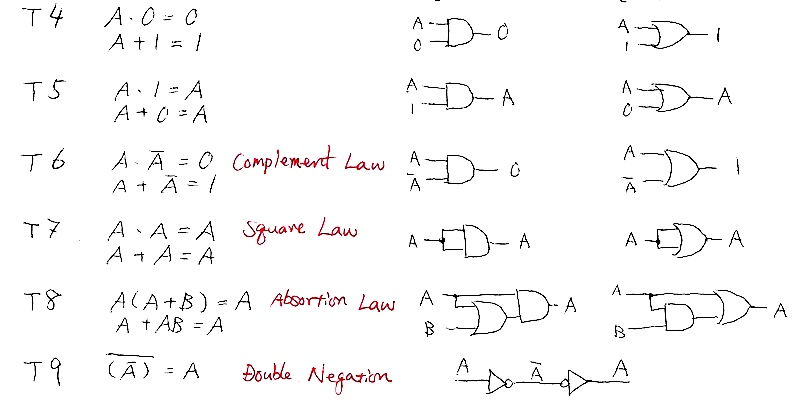 T4 A · 0 = 0 A 0 0 A 1 1
A + 1 = 1
T5 A · 1 = A A 1 A A 0 A
A + 0 = A
T6 A · A̅ = 0 Complement Law A A̅ 0 A A̅ 1
A + A̅ = 1
T7 A · A = A Square Law A A A A
A + A = A
T8 A(A+B) = A Absortion Law A B A A B A
A + AB = A
T9 \overline{(A̅)} = A Double Negation A A̅ A